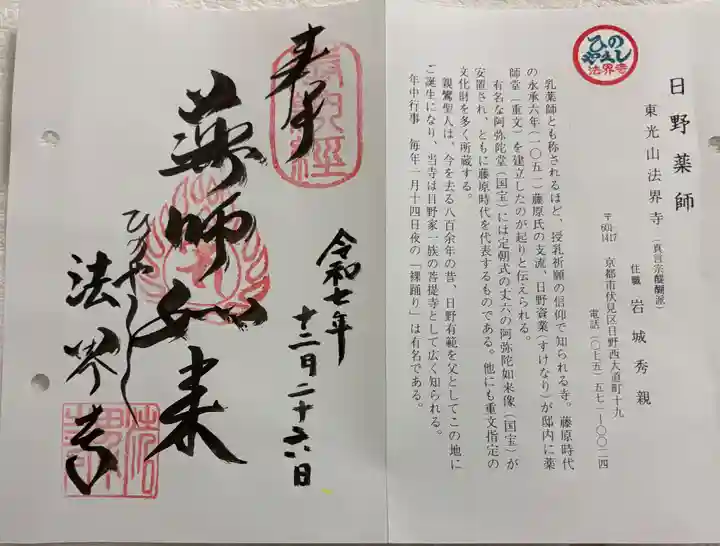 奉
令和七年
十二月二十六日
薬師如来
ひのやくし
法界寺
日野薬師
東光山法界寺(真言宗醍醐派)
住職 岩城秀親
〒601-1417 京都市伏見区日野西大道町十九
電話(〇七五)五七一―〇〇二四
乳薬師とも称されるほど、授乳祈願の信仰で知られる寺。藤原時代
の永承六年(一〇五一)藤原氏の支流、日野資業(すけなり)が邸内に薬
師堂(重文)を建立したのが起りと伝えられる。
有名な阿弥陀堂(国宝)には定朝式の丈六の阿弥陀如来像(国宝)が
安置され、ともに藤原時代を代表するものである。他にも重文指定の
文化財を多く所蔵する。
親鸞聖人は、今を去る八百余年の昔、日野有範を父としてこの地に
ご誕生になり、当寺は日野家一族の菩提寺として広く知られる。
年中行事 毎年一月十四日夜の「裸踊り」は有名である。
ひの
やくし
法界寺